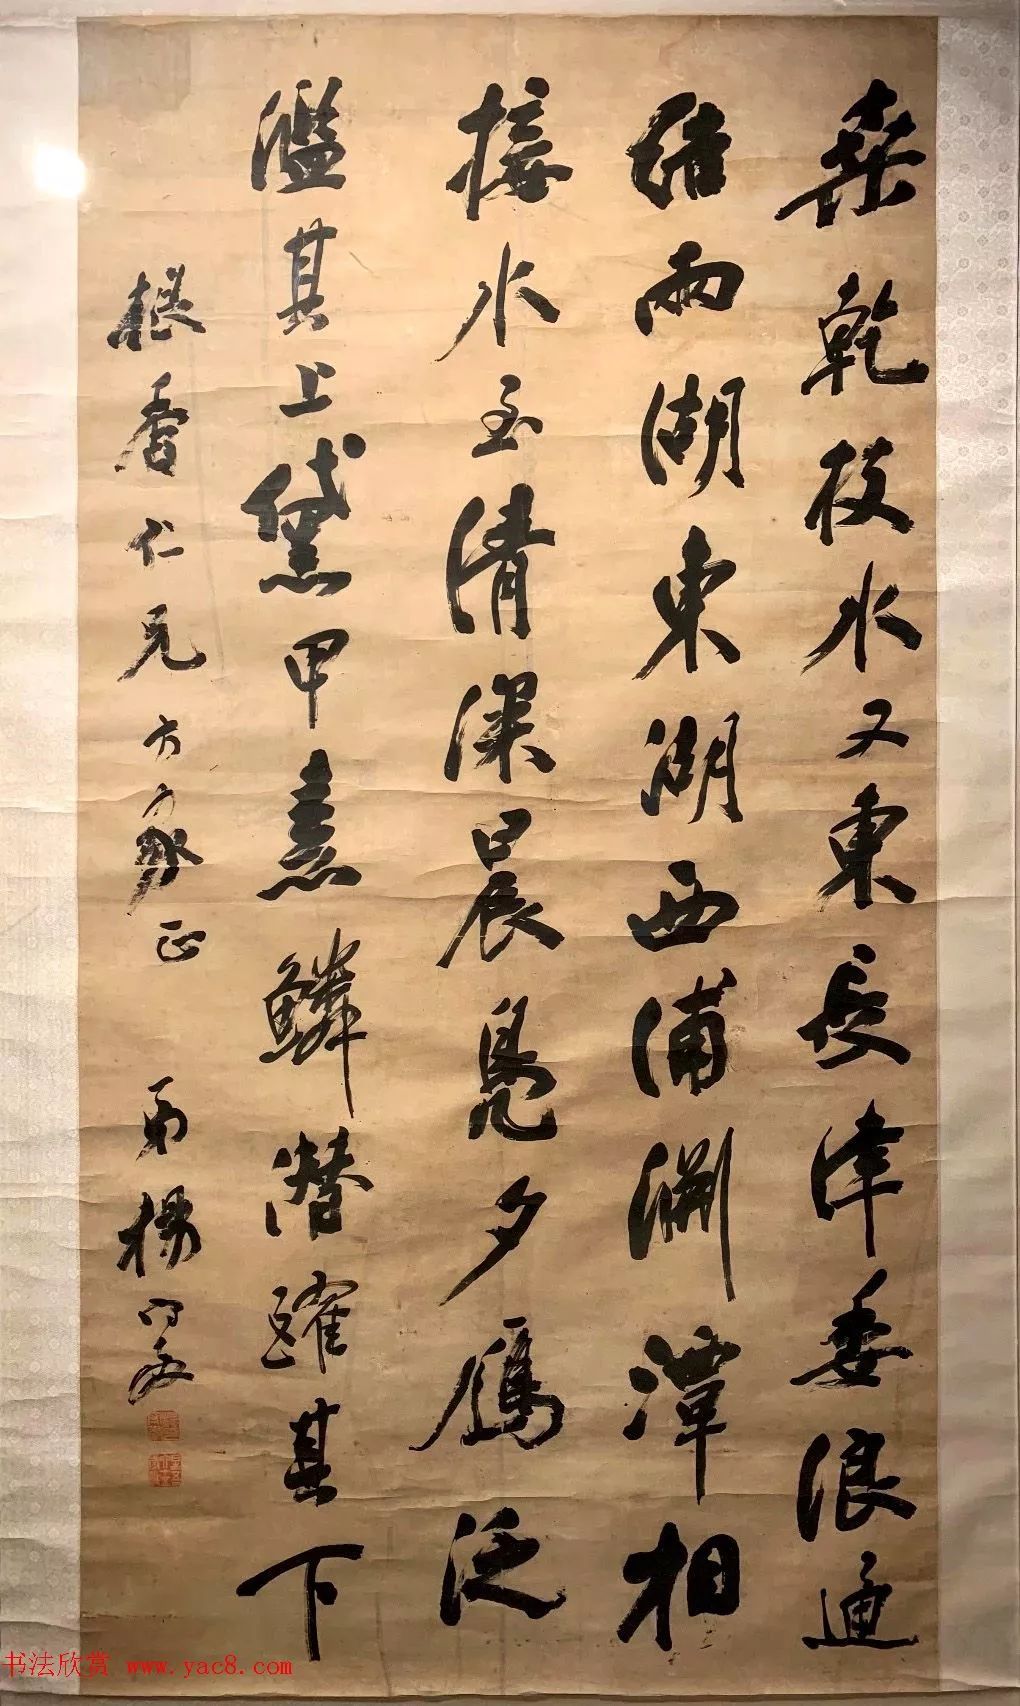 桑乾枝水又東長津委浪通
結兩湖東湖西浦淵潭相
接水至清深晨鳧夕鴈泛
濫其上黛甲素鱗潛躍其下
根香仁兄方家正 弟楊守敬
书法欣赏 www.yac8.com